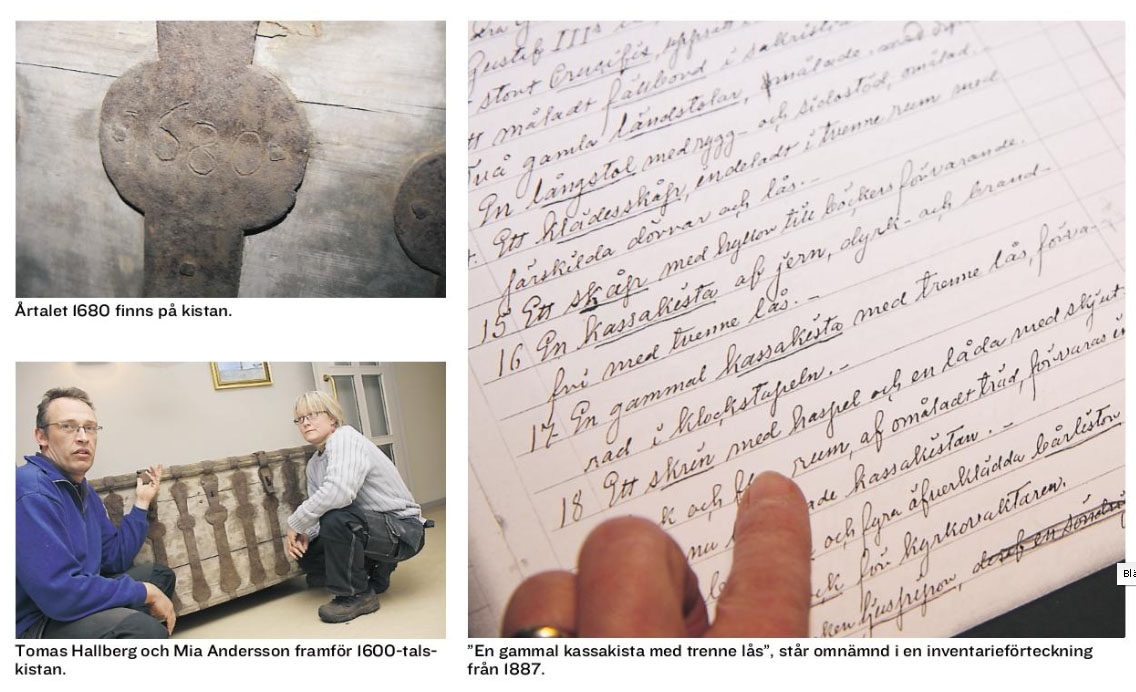 1680
Årtalet 1680 finns på kistan.
Tomas Hallberg och Mia Andersson framför 1600-tals-
kistan.
Gustaf IIIs
stort Crucifix, uppsatt
måladt fällbord i sakristi
Två gamla ländstolar, målade med
En långstol med rygg- och sidostöd, omålad
Ett klädesskåp, endeladt i tvenne rum med
särskilda dörrar och lås.-
15 Ett skåp med hyllor till böckers förvarande.
16 En kassakista af jern, dyrk- och brand-
fri med tvenne lås.-
17 En gammal kassakista med trenne lås, förva-
rad i klockstapeln.-
18 Ett skrin med haspel och en låda med skjut
k och rum, af omåladt träd, förvaras i
ade kassakistan.-
och fyra öfverklädda bårlister
för kyrkovaktaren.
"En gammal kassakista med trenne lås", står omnämnd i en inventarieförteckning
från 1887.
Blä